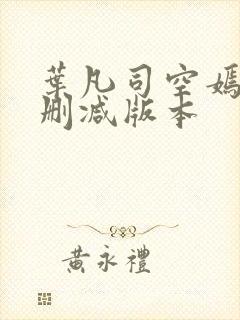 葉凡司空嫣
刪減版本
黃永禮